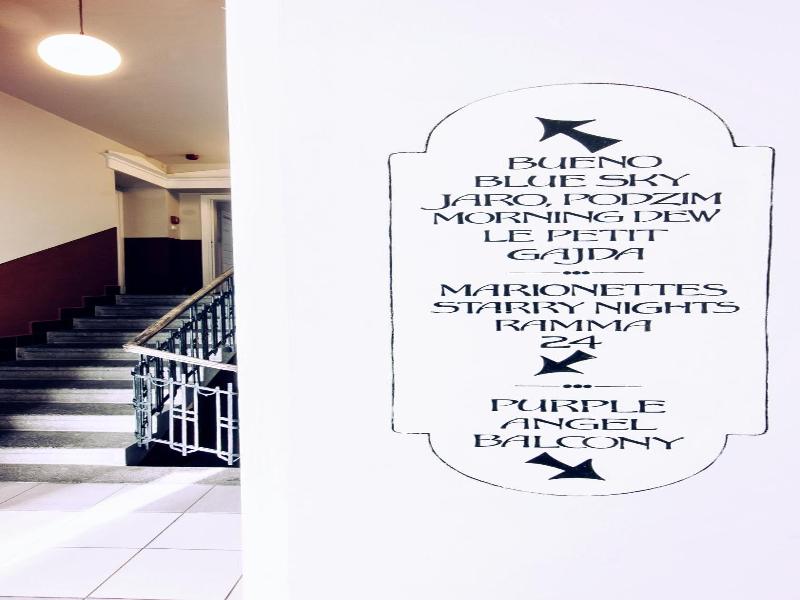 BUENO
BLUE SKY
JARO, PODZIM
MORNING DEW
LE PETIT
GAJDA
MARIONETTES
STARRY NIGHTS
RAMMA
24
PURPLE
ANGEL
BALCONY